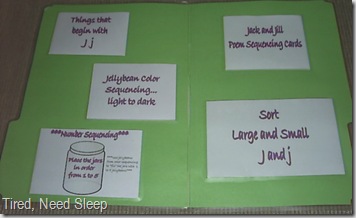 Things that
begin with
J j
Jellybean Color
Sequencing...
light to dark
***Number Sequencing***
Place the jars
in order
from 1 to 8
Jack and Jill
Poem Sequencing Cards
Sort
Large and Small
J and j
Tired, Need Sleep